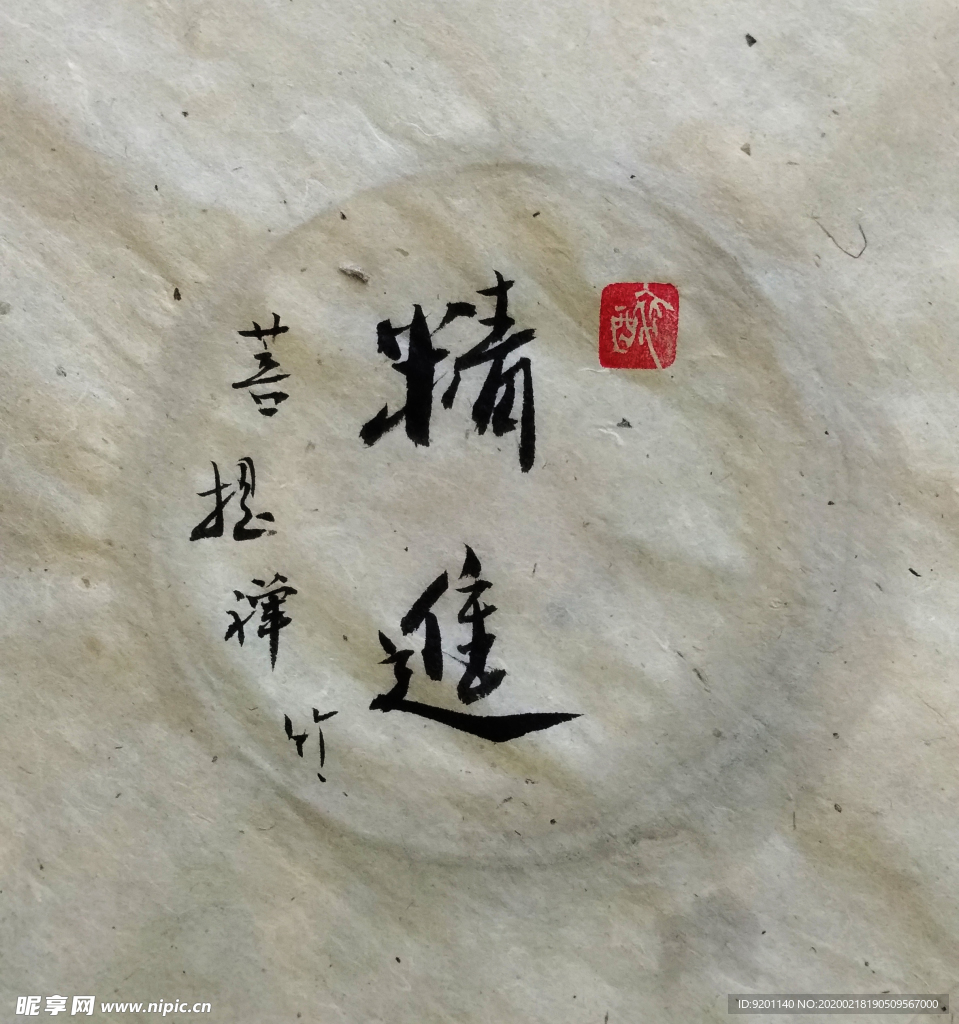 精進
菩提禅竹
昵享网 www.nipic.cn
ID:9201140 NO:20200218190509567000